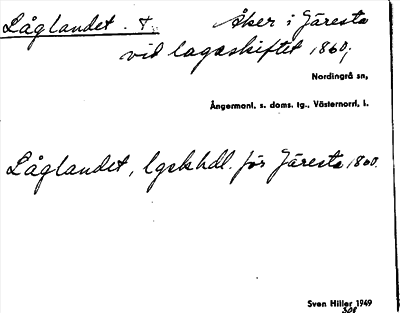 Låglandet. †. Åker i Järesta
vid lagaskiftet 1860;
Nordingrå sn,
Ångermanl. s. doms. tg., Västernorrl. l.
Låglandet, lgskhdl. för Järesta 1860.
Sven Hiller 1949
308